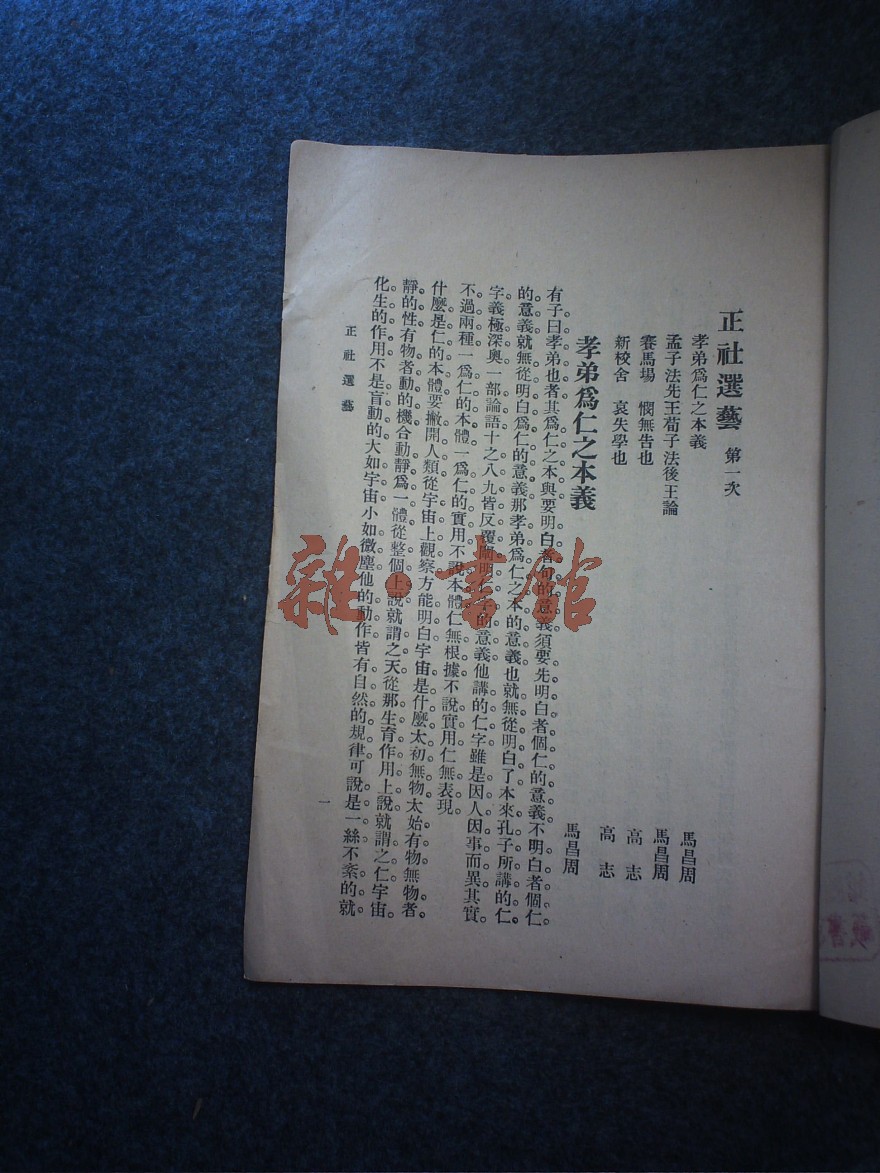 正社選藝 第一次
孝弟爲仁之本義 馬昌周
孟子法先王荀子法後王論 馬昌周
賽馬場 憫無告也 高志
新校舍 哀失學也 高志
孝弟爲仁之本義 馬昌周
有子曰孝弟也者其爲仁之本與要明白者句的意義須要先明白者個仁的意義不明白者個仁
的意義就無從明白爲仁的意義那孝弟爲仁之本的意義也就無從明白了本來孔子所講的仁
字義極深奧一部論語十之八九皆反覆闡明仁字的意義他講的仁字雖是因人因事而異其實
不過兩種一爲仁的本體一爲仁的實用不說本體仁無根據不說實用仁無表現。
什麼是仁的本體要撇開人類從宇宙上觀察方能明白宇宙是什麼太初無物太始有物無物者
靜的性有物者動的機合動靜爲一體從整個上說就謂之天從那生育作用上說就謂之仁宇宙
化生的作用不是盲動的大如宇宙小如微塵他的動作皆有自然的規律可說是一絲不紊的就
正社選藝
一
雜·書館